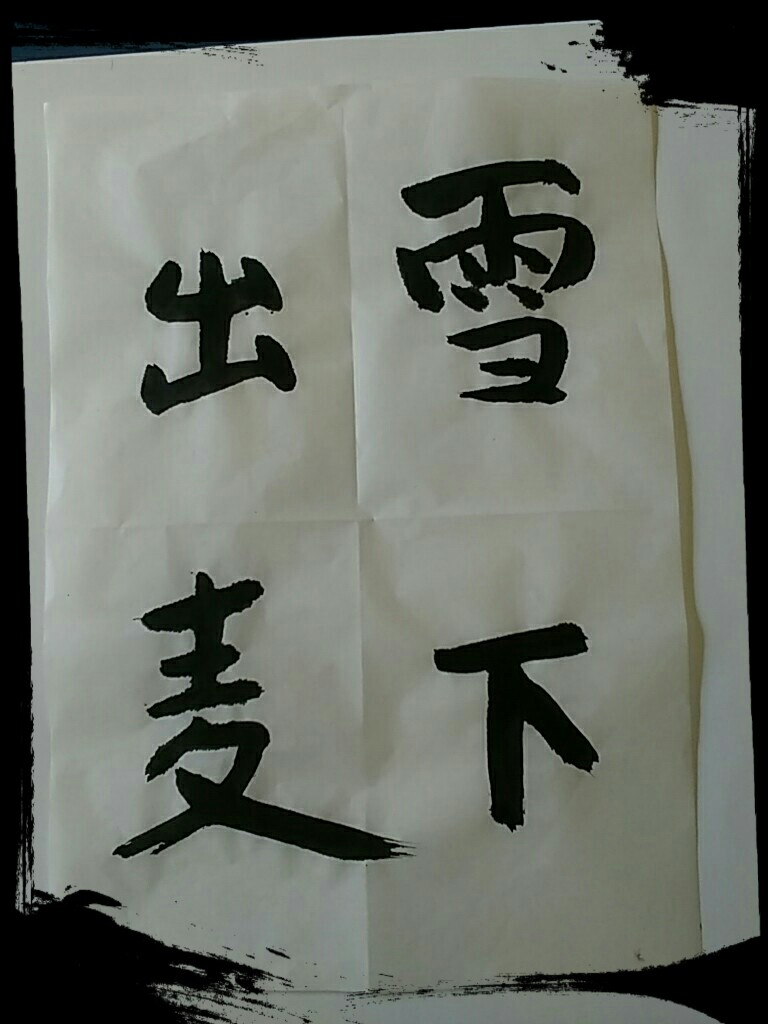 雪下
出麦